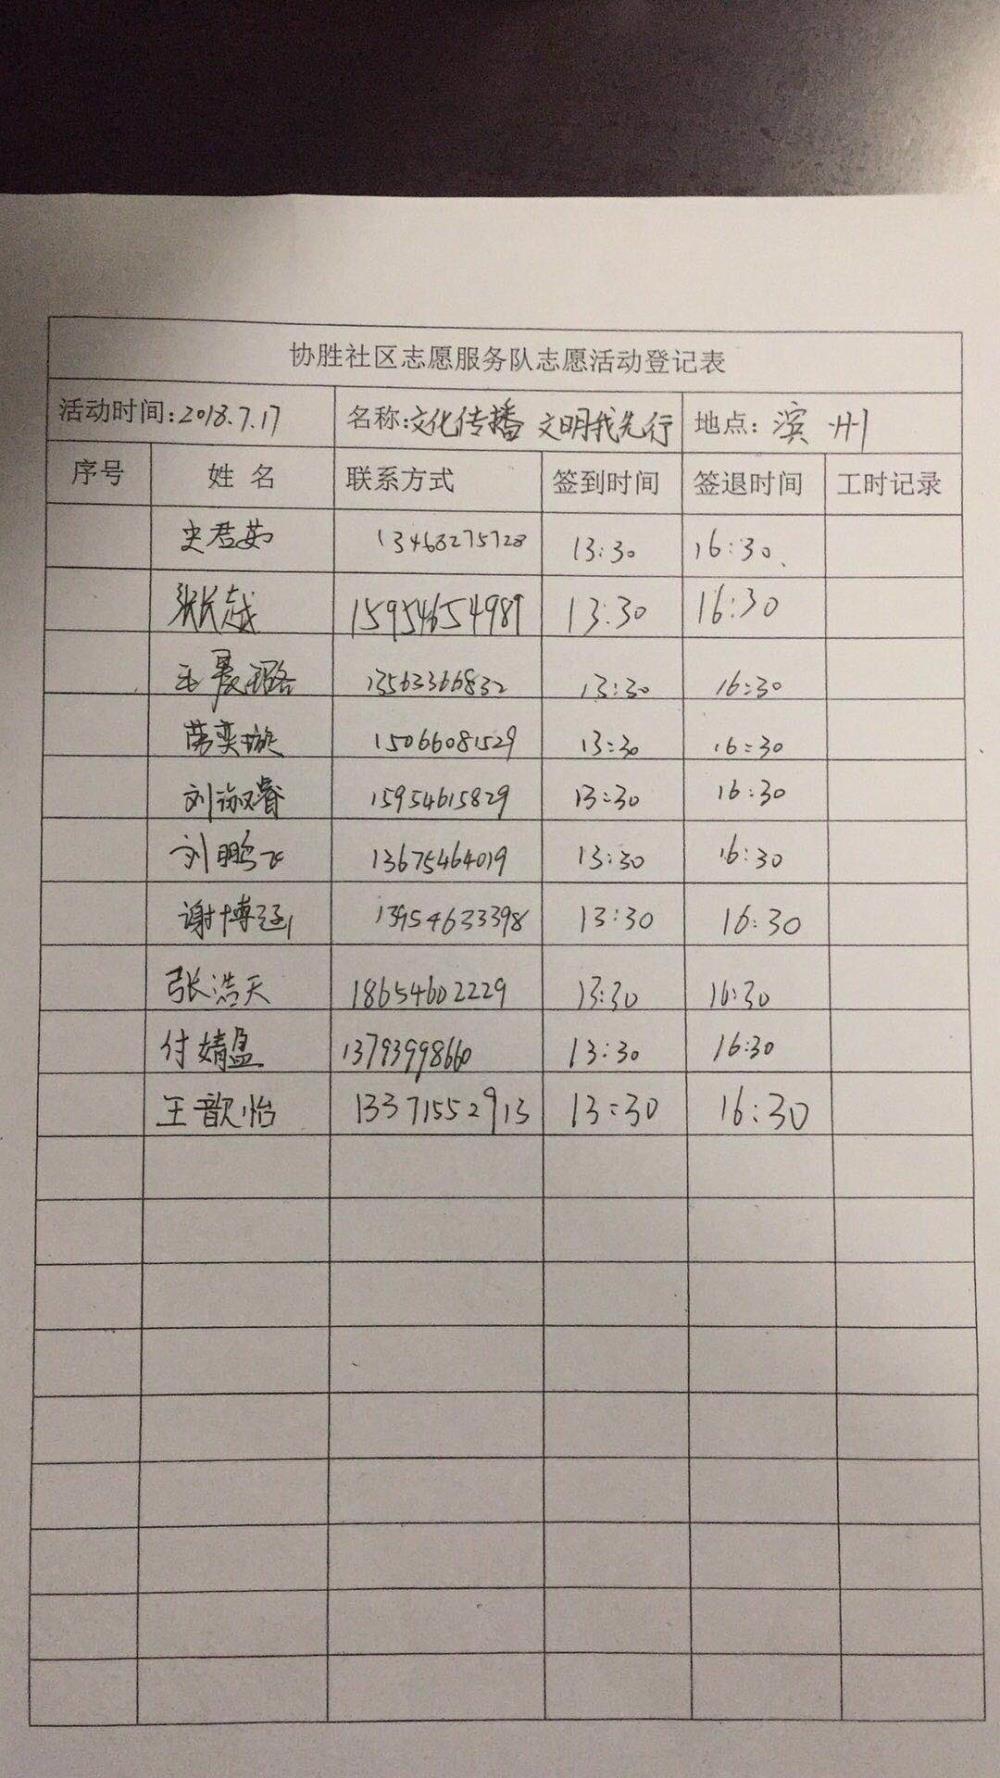 协胜社区志愿服务队志愿活动登记表
活动时间:2018.7.17 名称:文化传播 文明我先行 地点: 滨州
序号 姓名 联系方式 签到时间 签退时间 工时记录
史君茹 13468275728 13:30 16:30
张长越 15954654981 13:30 16:30
13563366832 13:30 16:30
奕璇 15066081529 13:30 16:30
刘淑睿 15954615829 13:30 16:30
刘鹏飞 13675464019 13:30 16:30
谢博涵 13954633398 13:30 16:30
张浩天 18654602229 13:30 16:30
付婧盈 13793998660 13:30 16:30
王歆怡 13371552913 13:30 16:30